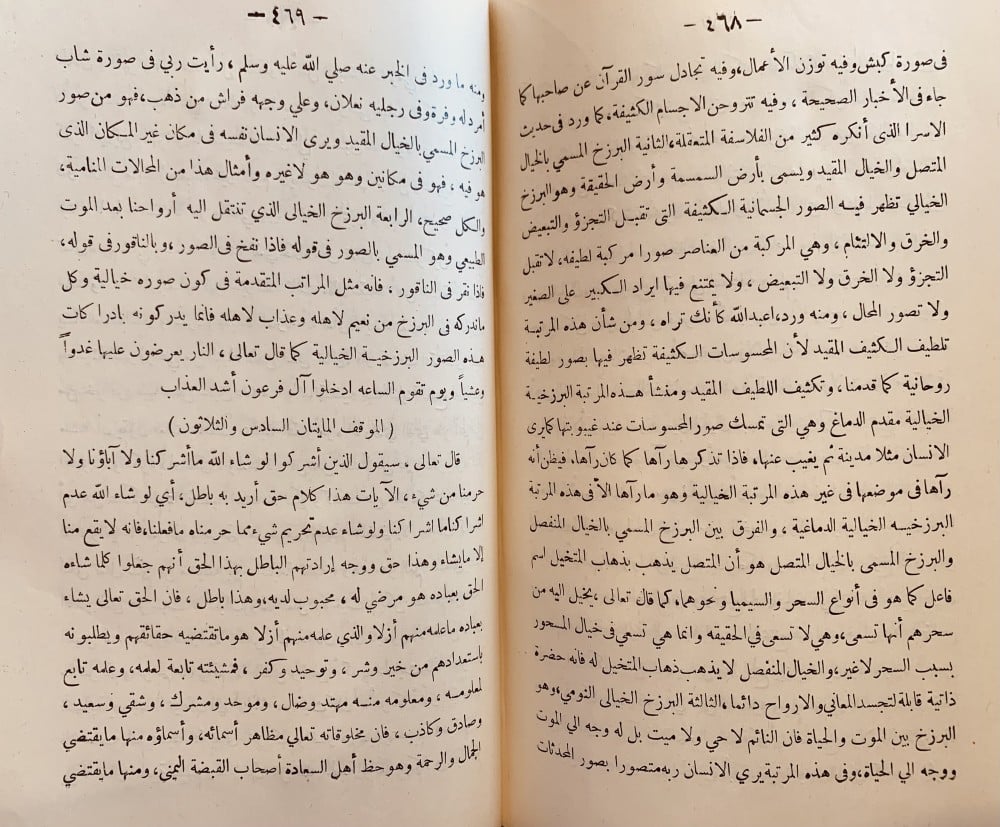 — ٤٦٨ —
فى صورة كبش وفيه توزن الأعمال،وفيه تجادل سور القرآن عن صاحبها كما
جاء فى الأخبار الصحيحة ، وفيه تتروحن الاجسام الكثيفة،كما ورد فى حديث
الاسرا الذى أنكره كثير من الفلاسفة المتعقلة،الثانية البرزخ المسمي بالخيال
المتصل والخيال المقيد ويسمى بأرض السمسمة وأرض الحقيقة وهو البرزخ
الخيالي تظهر فيه الصور الجسمانية الكثيفة التى تقبل التجزؤ والتبعيض
والخرق والالتئام ، وهي المركبة من العناصر صورا مركبة لطيفه، لاتقبل
التجزؤ ولا الخرق ولا التبعيض ، ولا يمتنع فيها ايراد الكبير على الصغير
ولا تصور المحال ، ومنه ورد،اعبدالله كأنك تراه ، ومن شأن هذه المرتبة
تلطيف الكثيف المقيد لأن المحسوسات الكثيفة تظهر فيها بصور لطيفة
روحانية كما قدمنا، وتكثيف اللطيف المقيد ومنشأ هذه المرتبة البرزخية
الخيالية مقدم الدماغ وهي التى تمسك صور المحسوسات عند غيبوبتها كمايرى
الانسان مثلا مدينة ثم يغيب عنها، فاذا تذكرها رآها كما كان رآها، فيظن أنه
رآها فى موضعها فى غير هذه المرتبة الخيالية وهو مارآها الآ فى هذه المرتبة
البرزخيه الخيالية الدماغية ، والفرق بين البرزخ المسمي بالخيال المنفصل
والبرزخ المسمى بالخيال المتصل هو أن المتصل يذهب بذهاب المتخيل اسم
فاعل كما هو فى أنواع السحر والسيميا ونحوهما،كما قال تعالى ،يخيل اليه من
سحرهم أنها تسعى،وهي لا تسعى في الحقيقه وانما هي تسعى فى خيال المسحور
بسبب السحر لاغير،والخيال المنفصل لا يذهب ذهاب المتخيل له فانه حضرة
ذاتية قابلة لتجسد المعاني والارواح دائما،الثالثة البرزخ الخيالى النومي،وهو
البرزخ بين الموت والحياة فان النائم لا حي ولا ميت بل له وجه الي الموت
ووجه الي الحياة،وفى هذه المرتبة يري الانسان ربه متصورا بصور المحدثات
— ٤٦٩ —
ومنه ماورد فى الخبر عنه صلي الله عليه وسلم ، رأيت ربي فى صورة شاب
أمرد له وفرة وفى رجليه نعلان، وعلي وجهه فراش من ذهب،فهو من صور
البرزخ المسمي بالخيال المقيد ويرى الانسان نفسه فى مكان غير المكان الذى
هو فيه ، فهو فى مكانين وهو هو لاغيره وأمثال هذا من المحالات المنامية،
والكل صحيح، الرابعة البرزخ الخيالى الذي تنتقل اليه أرواحنا بعد الموت
الطبيعي وهو المسمي بالصور فى قوله فاذا نفخ فى الصور ،وبالناقور فى قوله،
فاذا نقر فى الناقور ، فانه مثل المراتب المتقدمة فى كون صوره خيالية وكل
ماندركه فى البرزخ من نعيم لاهله وعذاب لاهله فانما يدركونه بادراكات
هذه الصور البرزخية الخيالية كما قال تعالى ، النار يعرضون عليها غدواً
وعشياً ويوم تقوم الساعه ادخلوا آل فرعون أشد العذاب
( الموقف المايتان السادس والثلاثون )
قال تعالى ، سيقول الذين أشركوا لو شاء الله ماأشركنا ولا آباؤنا ولا
حرمنا من شيء ، الآيات هذا كلام حق أريد به باطل، أي لو شاء الله عدم
اشراكنا ما اشركنا ولو شاء عدم تحريم شيء مما حرمناه مافعلنا،فانه لايقع منا
إلا مايشاء وهذا حق ووجه إرادتهم الباطل بهذا الحق أنهم جعلوا كلما شاءه
الحق بعباده هو مرضي له ، محبوب لديه،وهذا باطل ، فان الحق تعالى يشاء
بعباده ماعلمه منهم أزلا والذي علمه منهم أزلا هو ماتقتضيه حقائقهم ويطلبونه
باستعدادهم من خير وشر ، وتوحيد وكفر ، فمشيئته تابعة لعلمه، وعلمه تابع
لمعلومه ، ومعلومه منه مهتد وضال ، وموحد ومشرك ، وشقي وسعيد ،
وصادق وكاذب ، فان مخلوقاته تعالي مظاهر أسمائه، وأسماؤه منها مايقتضي
الجمال والرحمة وهو حظ أهل السعادة أصحاب القبضة اليمنى، ومنها مايقتضي